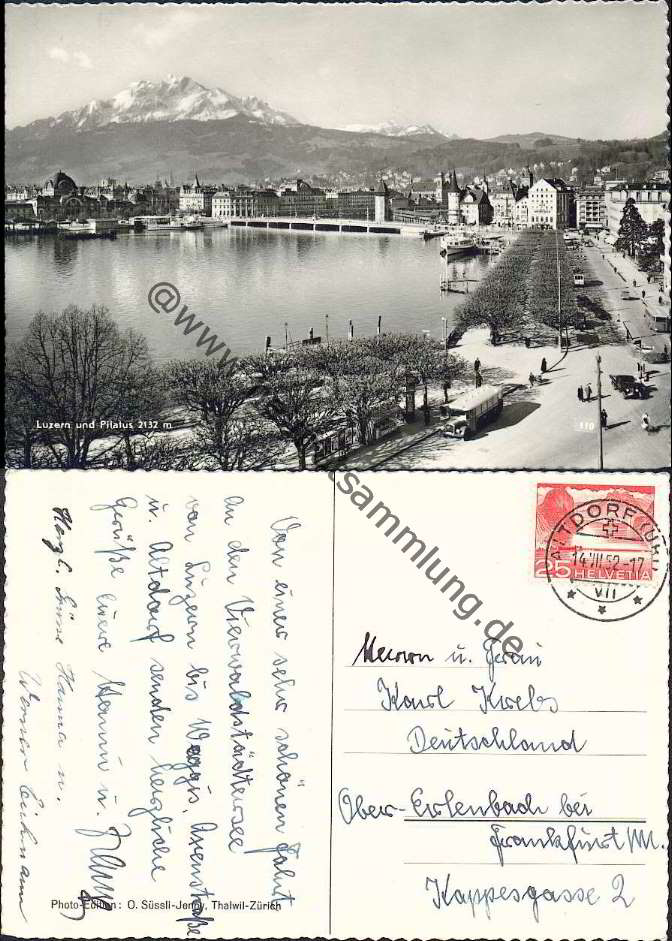 Luzern und Pilatus 2132 m
110
@www.
tsammlung.de
Von einer sehr schönen Fahrt
an den Vierwaldstädtersee
von Luzern bis Weggis, Axenstraße
u. Altdorf senden herzliche
Grüße eure Henni u.
Herzl. Grüsse Hanna u.
Werner
Photo-Edition: O. Süssli-Jenny, Thalwil-Zürich
ALTDORF (URI)
14.VII.52-17
VII
25 HELVETIA
Herrn u. Frau
Karl Krebs
Deutschland
Ober-Erlenbach bei
Frankfurt/M.
Kappesgasse 2